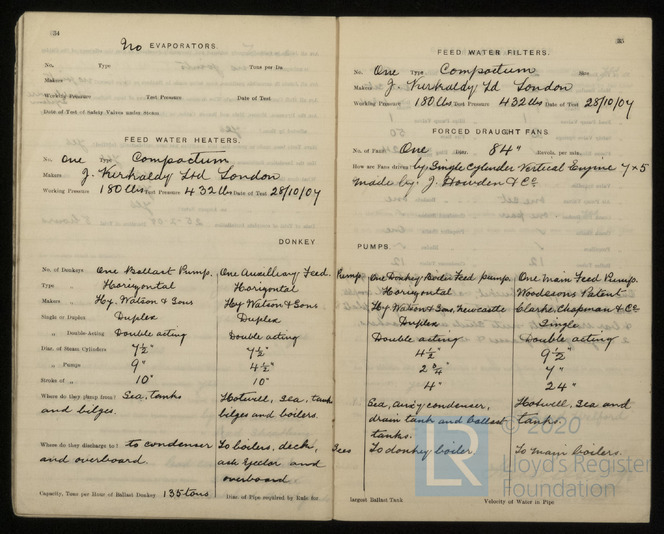 134
No EVAPORATORS.
No. Type Tons per Da
Makers
Working Pressure Test Pressure Date of Test
Date of Test of Safety Valves under Steam
FEED WATER HEATERS.
No. One Type Compactum
Makers J. Kirkaldy Ltd London
Working Pressure 180 lbs Test Pressure 432 lbs Date of Test 28/10/07
DONKEY
No. of Donkeys One Ballast Pump. One Auxilleary Feed.
Type „ Horizontal Horizontal
Makers „ Hy. Watson & Sons Hy Watson & Sons.
Single or Duplex Duplex Duplex
„ Double-Acting Double acting Double acting
Diar. of Steam Cylinders 7½" 7½"
„ Pumps 9" 4½"
Stroke of „ 10" 10"
Where do they pump from? Sea, tanks Hotwell, Sea, tank
and bilges. bilges and boilers.
Where do they discharge to? to condenser To boilers, deck,
and overboard. ash ejector and
overboard
Capacity, Tons per Hour of Ballast Donkey 135 tons Diar. of Pipe required by Rule for
35
FEED WATER FILTERS.
No. One Type Compactum Size
Makers J. Kirkaldy Ld London
Working Pressure 180 lbs Test Pressure 432 lbs Date of Test 28/10/07
FORCED DRAUGHT FANS.
No. of Fans One Diar. 84" Revols. per min.
How are Fans driven? by Single Cylinder Vertical Engine 7 x 5
Made by J. Howden & Co
PUMPS.
Pump One Donkey Boiler Feed pump. One Main Feed Pump.
Horizontal Woodesons Patent
Hy Watson & Sons, Newcastle Clarke, Chapman & Co
Duplex Single
Double acting Double acting
4½" 9½"
2¾" 7"
4" 24"
Sea, auxy condenser, Hotwell, Sea and
drain tank and ballast tanks.
tanks.
To donkey boiler To main boilers.
largest Ballast Tank Velocity of Water in Pipe
LR © 2020
Lloyd's Register
Foundation